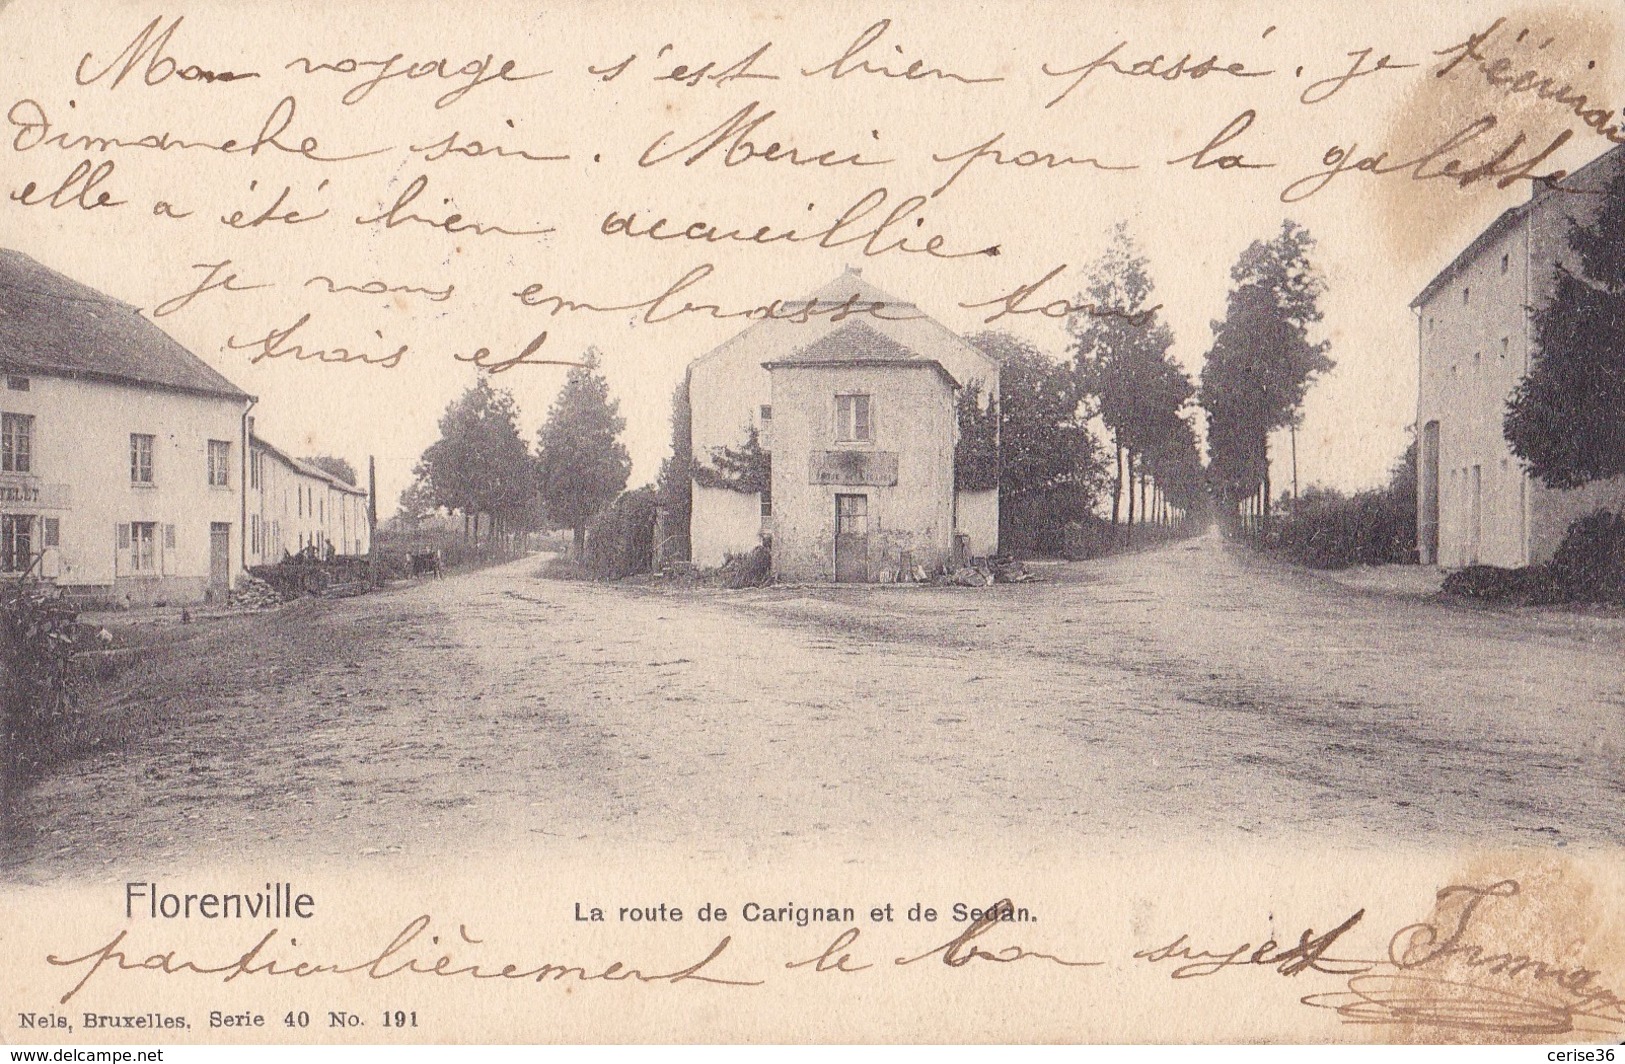 Mon voyage s'est bien passé. Je t'écrirai
dimanche soir. Merci pour la galette
elle a été bien accueillie.
Je vous embrasse tous
trois et
TELET
Florenville
La route de Carignan et de Sedan.
particulièrement le bon sujet Irma
Nels, Bruxelles, Serie 40 No. 191
www.delcampe.net
cerise36